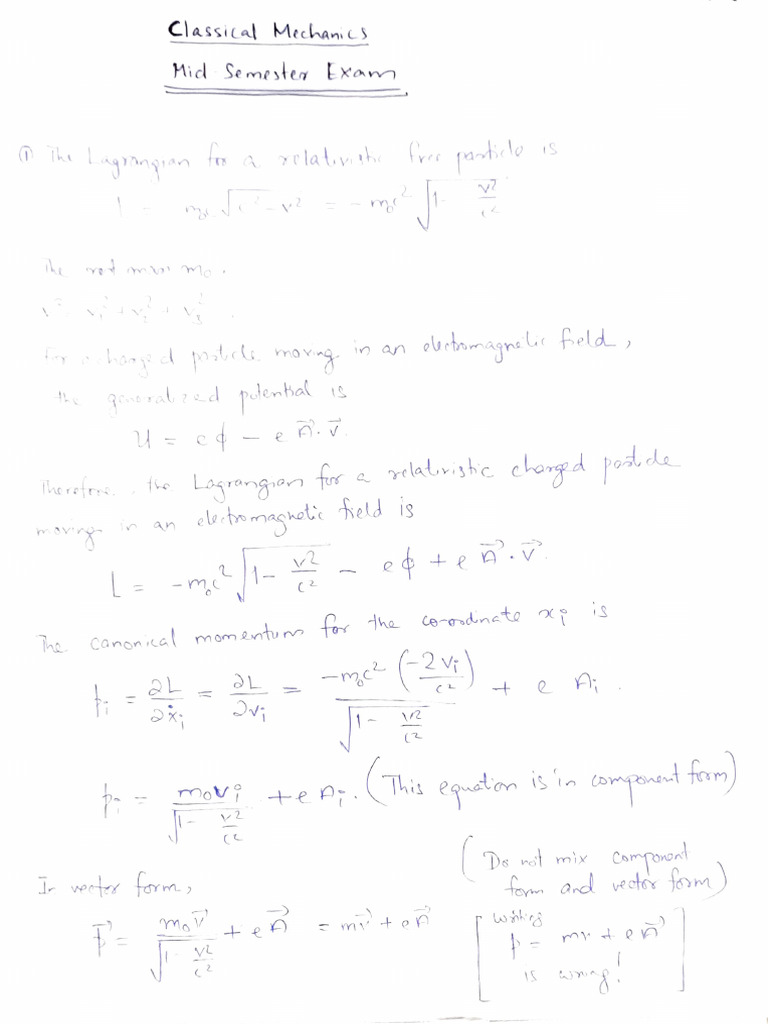 Classical Mechanics
Mid Semester Exam
① The Lagrangian for a relativistic free particle is
L = m₀c √(c² - v²) = - m₀c² √(1 - v²/c²)
The rest mass m₀.
v² = v₁² + v₂² + v₃².
For a charged particle moving in an electromagnetic field,
the generalized potential is
U = eϕ - e A⃗·v⃗.
Therefore, the Lagrangian for a relativistic charged particle
moving in an electromagnetic field is
L = -m₀c² √(1 - v²/c²) - eϕ + e A⃗·v⃗.
The canonical momentum for the co-ordinate xᵢ is
pᵢ = ∂L/∂ẋᵢ = ∂L/∂vᵢ = -m₀c² (-2vᵢ/c²) / √(1 - v²/c²) + e Aᵢ.
pᵢ = m₀vᵢ / √(1 - v²/c²) + e Aᵢ. (This equation is in component form)
In vector form,
p⃗ = m₀v⃗ / √(1 - v²/c²) + e A⃗ = mv⃗ + e A⃗
(Do not mix component
form and vector form)
[writing
p = mv + e A⃗
is wrong!]